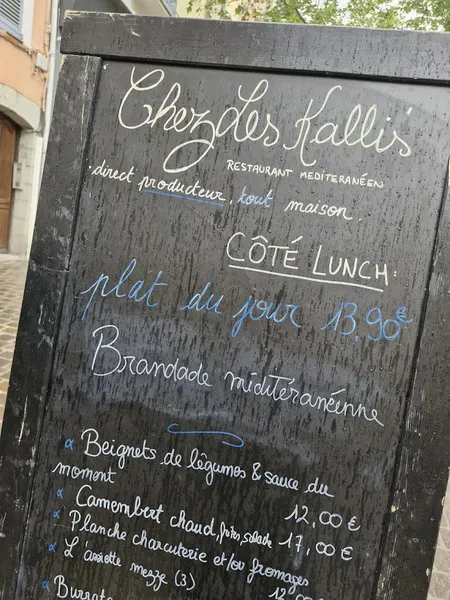 Chez Les Kallis
RESTAURANT MEDITERANÉEN
. direct producteur, tout maison .
CÔTÉ LUNCH :
plat du jour 13,90€
Brandade méditéranéinne
Beignets de légumes & sauce du
moment 12,00 €
Camembert chaud, salade 17,00 €
Planche charcuterie et/ou fromages
L'assiette mezze (3) 12,00
Burrata